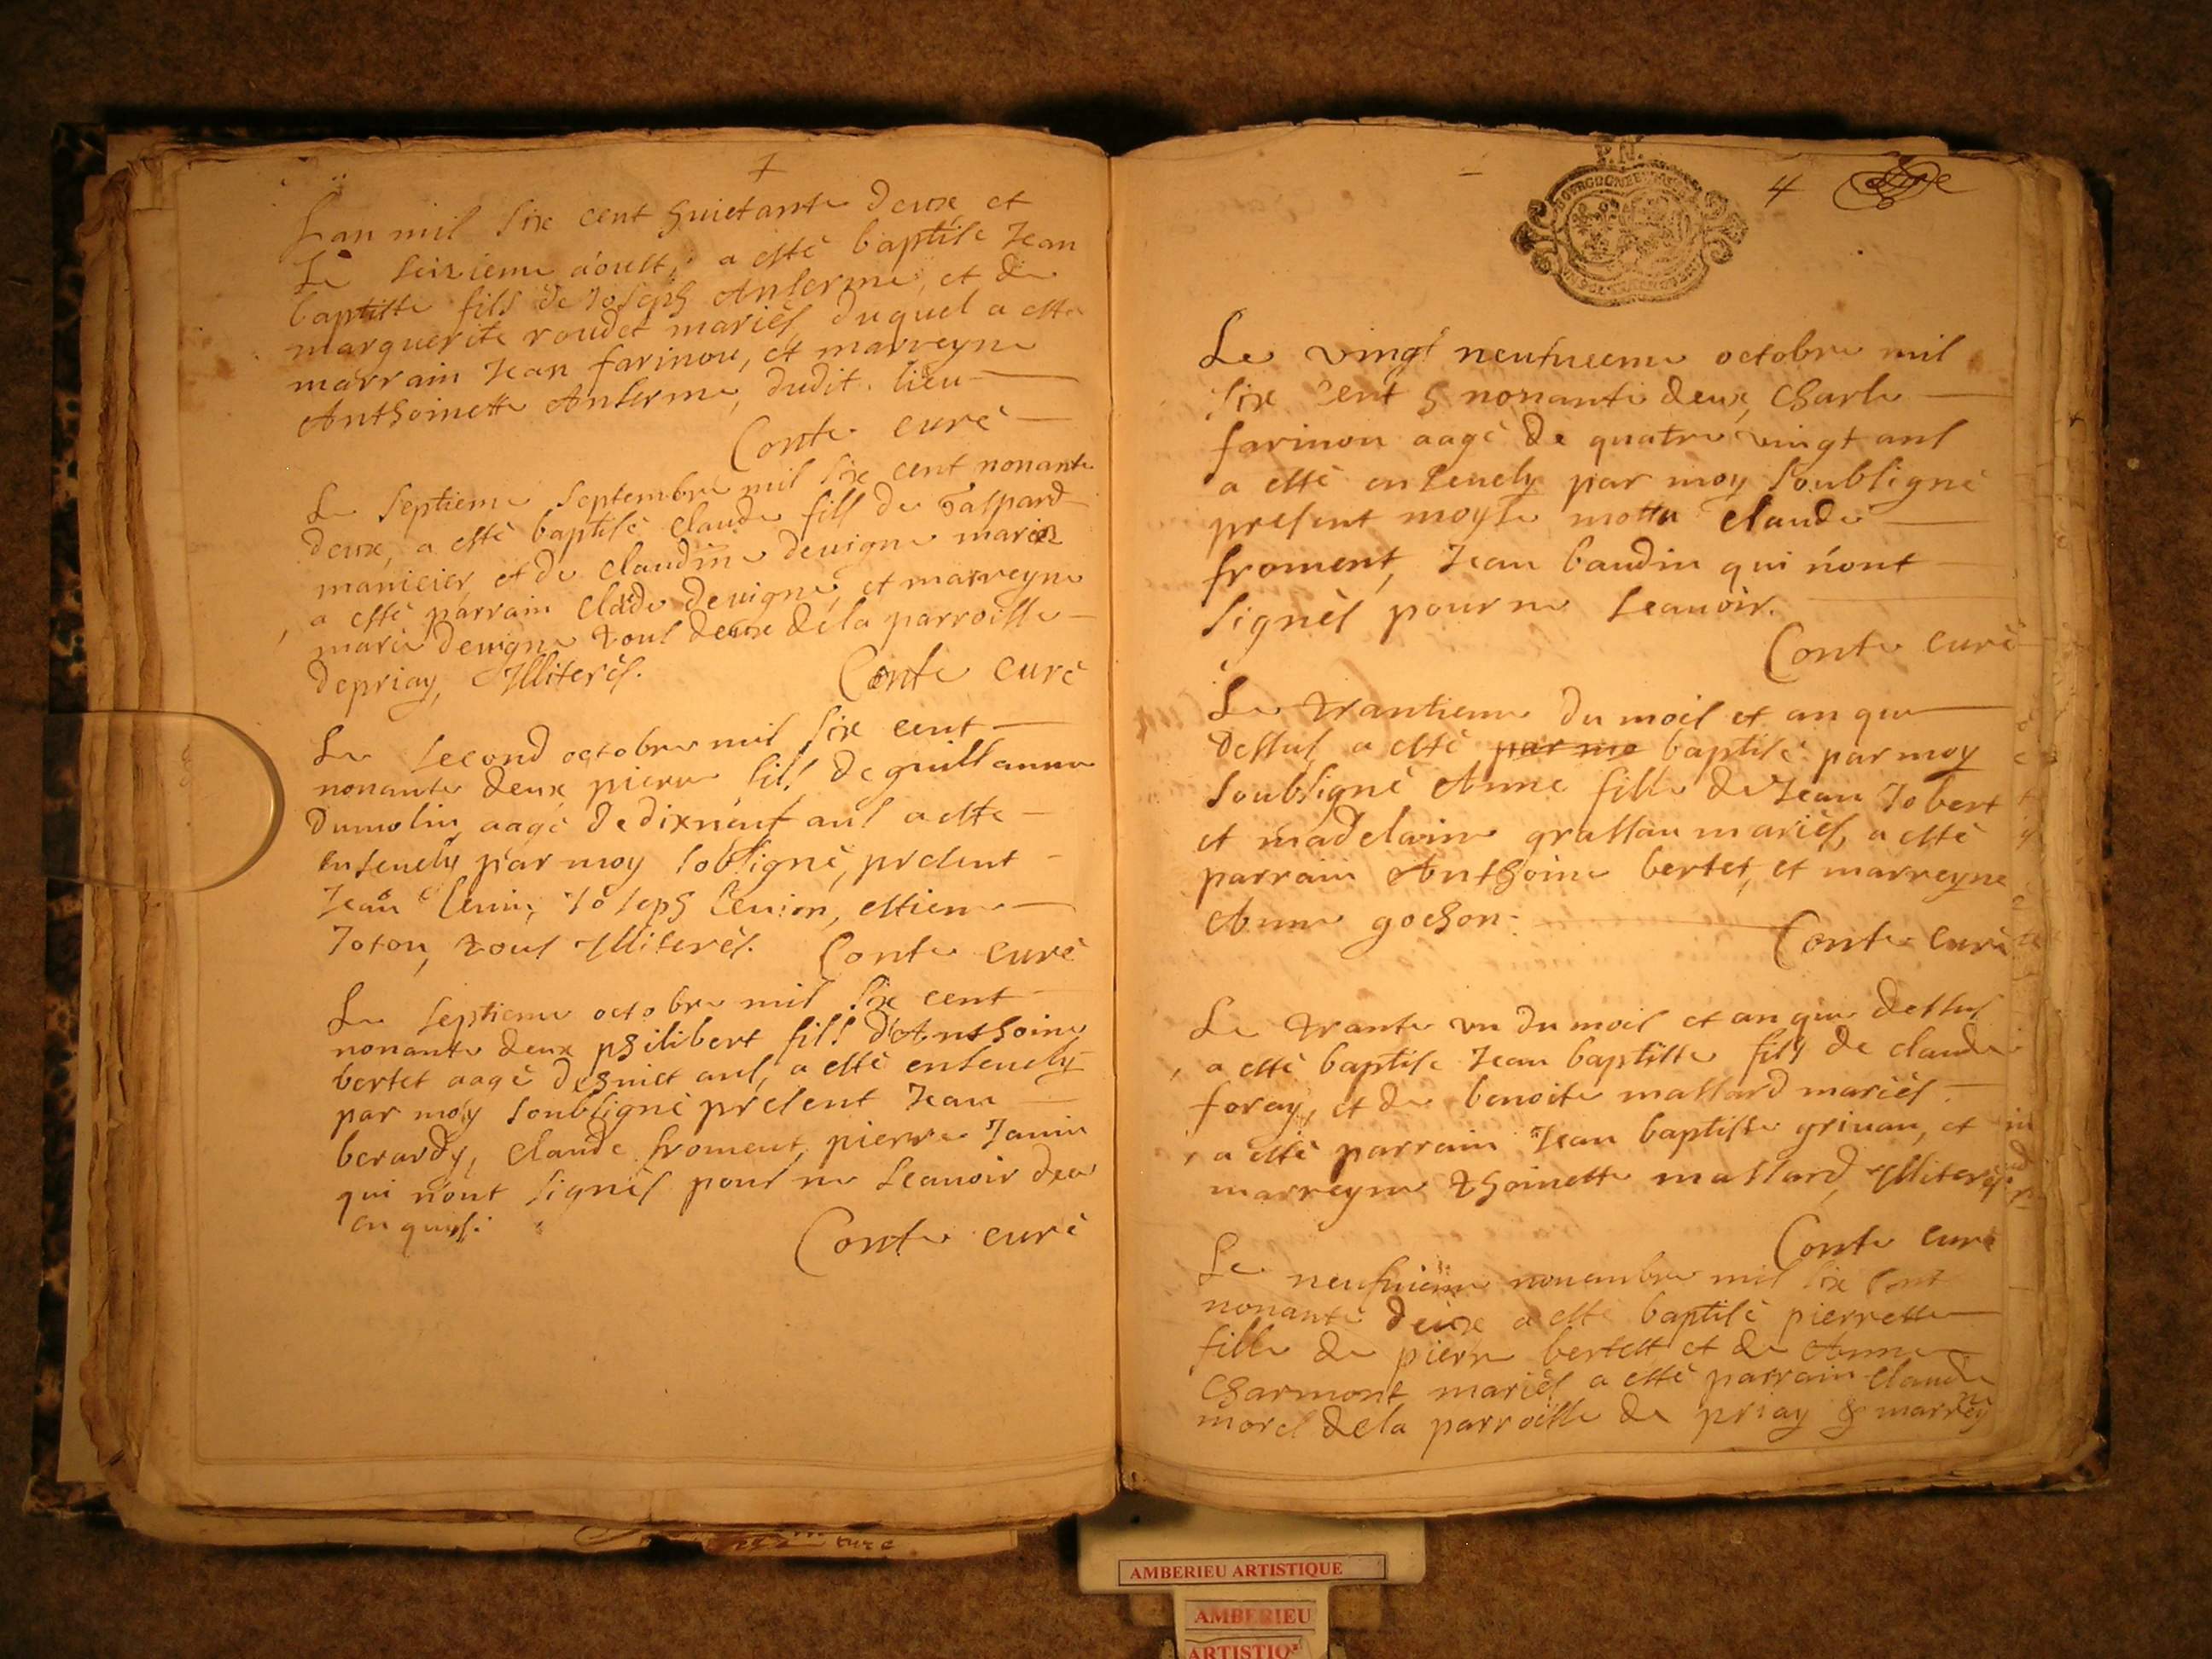 Lan mil six cent huictante deux et
Le seizieme aoust, a esté baptise Jean
baptiste fils de Joseph Anserme, et de
marguerite roudet mariés, duquel a este
marrain Jean farinon, et marreyne
Anthoinette Anserme, dudit lieu
Conte curé
Le septieme septembre mil six cent nonante
deux, a esté baptisé claude fils de Gaspard
manicier, et de claudine devigne mariés
a esté parrain claude devigne, et marreyne
marie devigne tous deux de la parroisse
depriay, Illiterés. Conte curé
Le second octobre mil six cent
nonante deux pierre fils de guillaume
dumolin, aagé de dixneuf ans a este
ensevely par moy sobsigné, present
Jean Joseph estienne
Joton, tous Illiterés. Conte curé
Le septieme octobre mil six cent
nonante deux philibert fils d'Anthoine
bertet aagé de huict ans, a esté ensevely
par moy soubsigné present Jean
berardy, claude froment, pierre Janin
qui n'ont signés pour ne scavoir de ce
enquis.
Conte curé
P.N.
4
Le vingt neufvieme octobre mil
six cent nonante deux, Charle
farinon aagé de quatre vingt ans
a esté ensevely par moy soubsigné
present moyse motta claude
froment, Jean baudin qui n'ont
signés pour ne scavoir.
Conte curé
Le trantieme du mois et an que
dessus, a esté par mo baptisé par moy
soubsigné Anne fille de Jean Jobert
et madelaine grassau mariés, a esté
parrain Anthoine bertet, et marreyne
Anne gochon.
Conte curé
Le trante un du mois et an que dessus
a esté baptise Jean baptiste fils de claude
foray, et de benoite massard mariés
a esté parrain Jean baptiste grivau, et
marreyne Thoinette massard, Illiterés
Conte curé
Le neufvieme novembre mil six cent
nonante deux a esté baptisé pierrette
fille de pierre bertett et de Anne
Charmont mariés a esté parrain claude
morel dela parroisse de priay & marrey
ne
curé
AMBERIEU ARTISTIQUE
AMBERIEU
ARTISTIQ